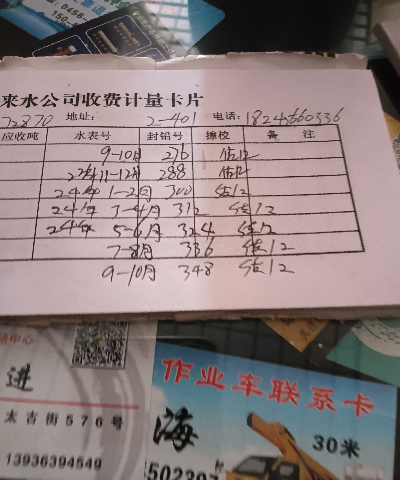 0456-
750-
来水公司收费计量卡片
72870 地址: 2-401 电话: 18245660336
应收吨 水表号 封铅号 擦校 备注
9-10月 276 估12
11-12月 288 估12
24年1-2月 300 估12
24年 3-4月 312 估12
24年 5-6月 324 估12
7-8月 336 估12
9-10月 348 估12
销中心
进
太古街576号
13936394549
作业车联系卡
海
30米
502307